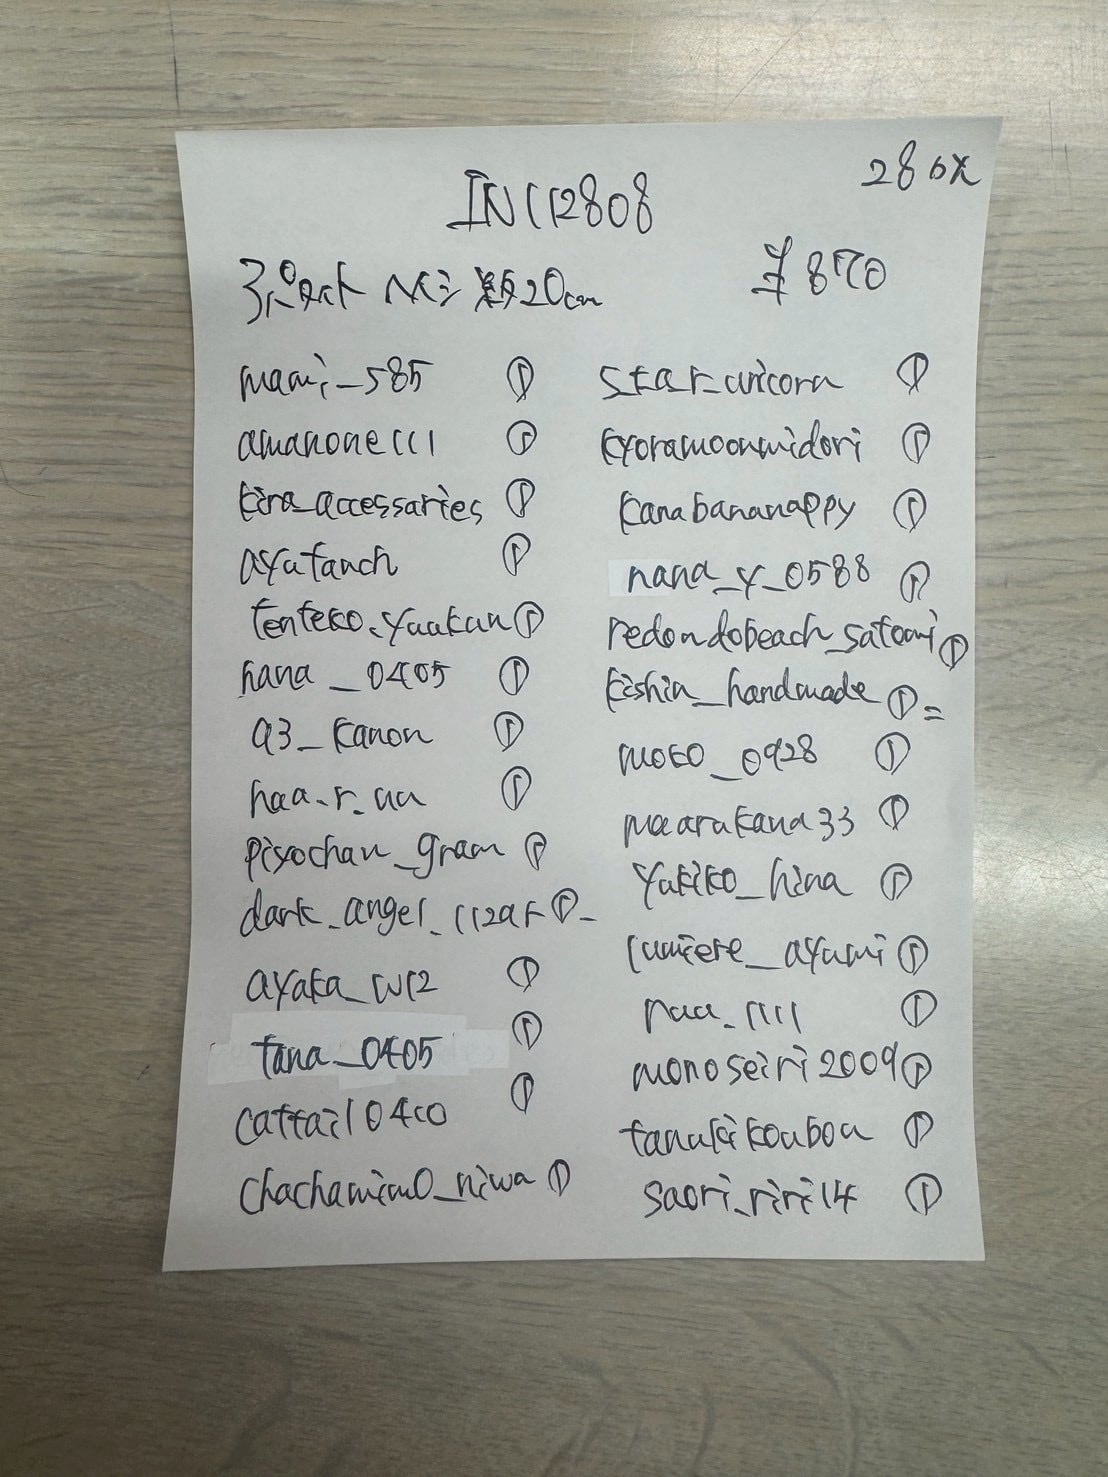 28点
IN112808
¥870
20cm
mami_585 ①
amanone111 ①
kira_accessaries ①
ayutanch ①
tenteko.yuukun ①
hana_0405 ①
a3_kanon ①
haa.r_uu ①
piyochan_gram ①
dark_angel_112ar ①
ayaka_w12 ①
tana_0405 ①
cattail0410 ①
chachamim0_niwa ①
star_unicorn ①
kyoramoonmidori ①
kanabananappy ①
nana_y_0588 ①
redondobeach_satomi ①
kishin_handmade ①
moko_0928 ①
maarukana33 ①
yukiko_hina ①
lumiere_ayumi ①
naa_1111 ①
monoseiri2009 ①
tanukikoubou ①
saori_riri14 ①